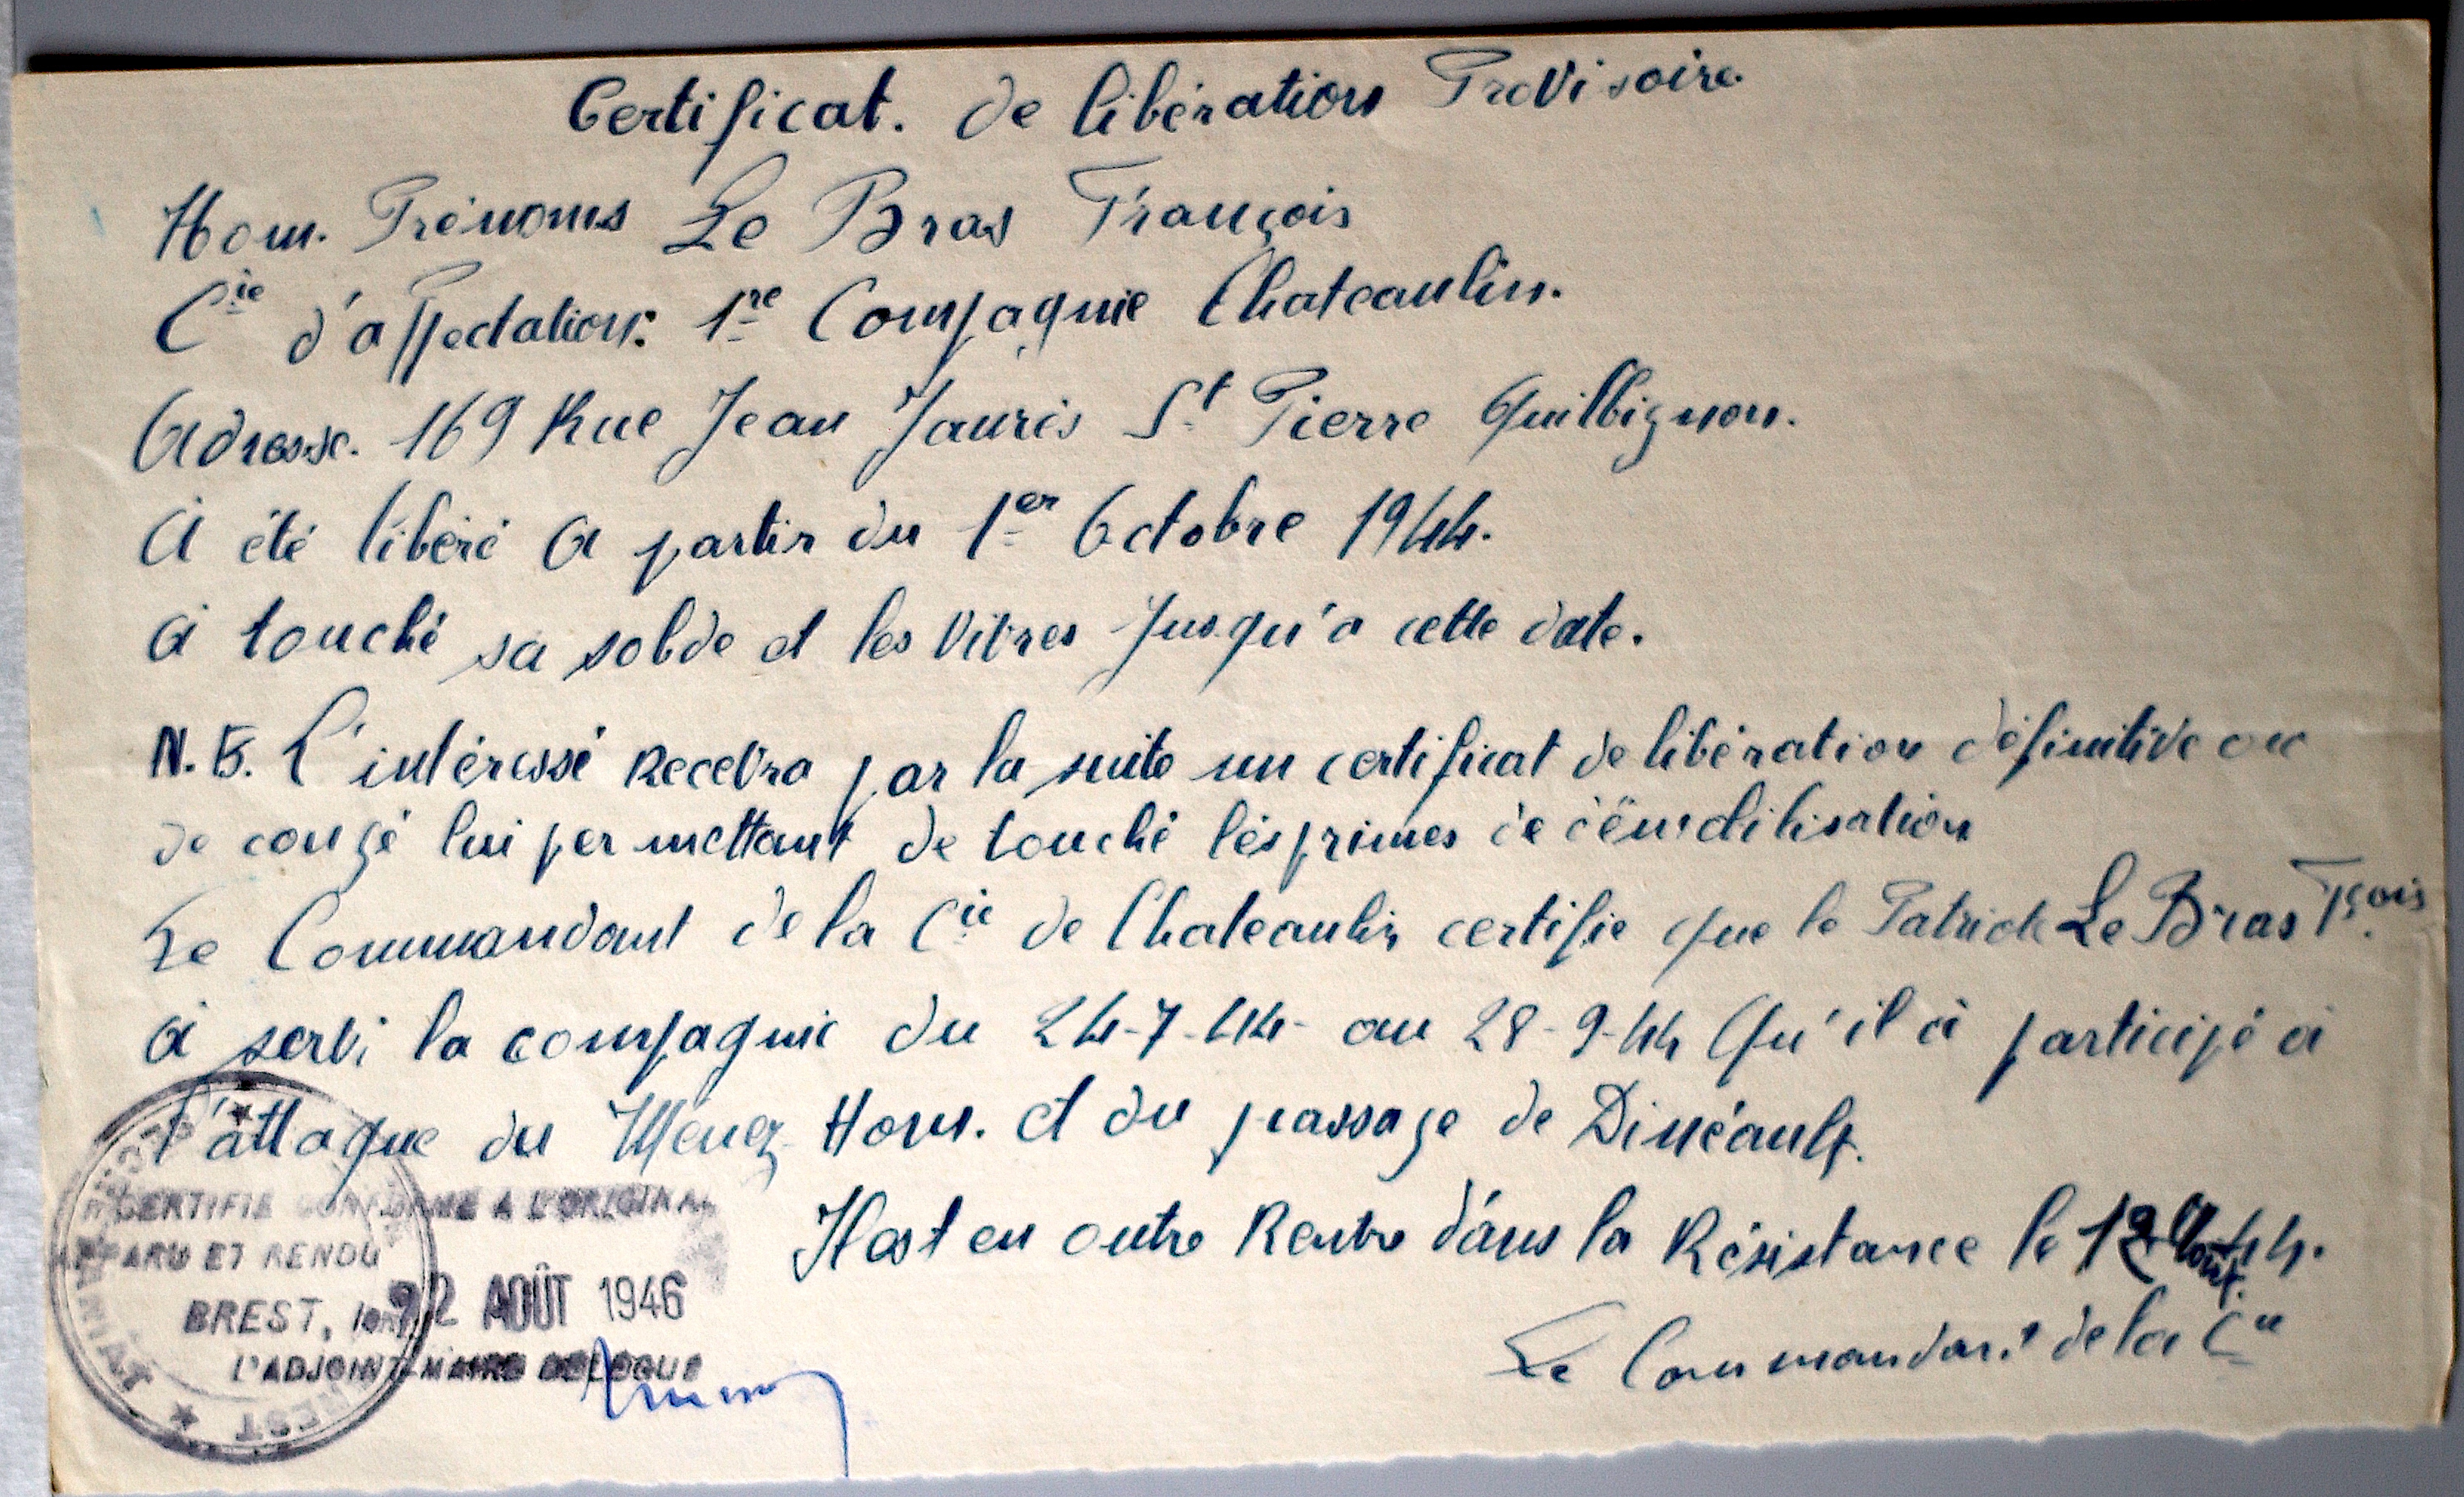 Certificat. de libération Provisoire.
Nom. Prénoms Le Bras François
Cie d'affectation: 1re Compagnie Chateaulin.
Adresse. 169 Rue Jean Jaurès St Pierre Quilbignon.
A été libéré A partir du 1er Octobre 1944.
A touché sa solde et les vivres jusqu'a cette date.
N.B. L'intéressé Recevra par la suite un certificat de libération définitive ou
de congé lui permettant de touché les primes de démobilisation
Le Commandant de la Cie de Chateaulin certifie que le Patriote Le Bras Fçois
A servi la compagnie du 24-7-44- au 28-9-44 Qu'il à participé à
l'attaque du Menez Hom. et du passage de Dinéault.
Il est en outre Rentré dans la Résistance le 44.
Le Commandant de la Cie
CERTIFIE CONFORME A L'ORIGINAL
PARU ET RENDU
BREST, le 2 AOÛT 1946
L'ADJOINT-MAIRE DELEGUE
BREST